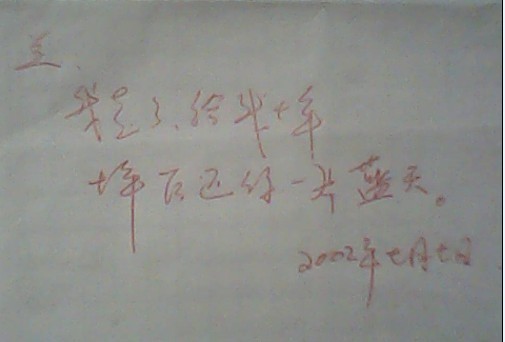 兰、
我走了、给我十年
十年后还你一片蓝天。
2002年七月七日